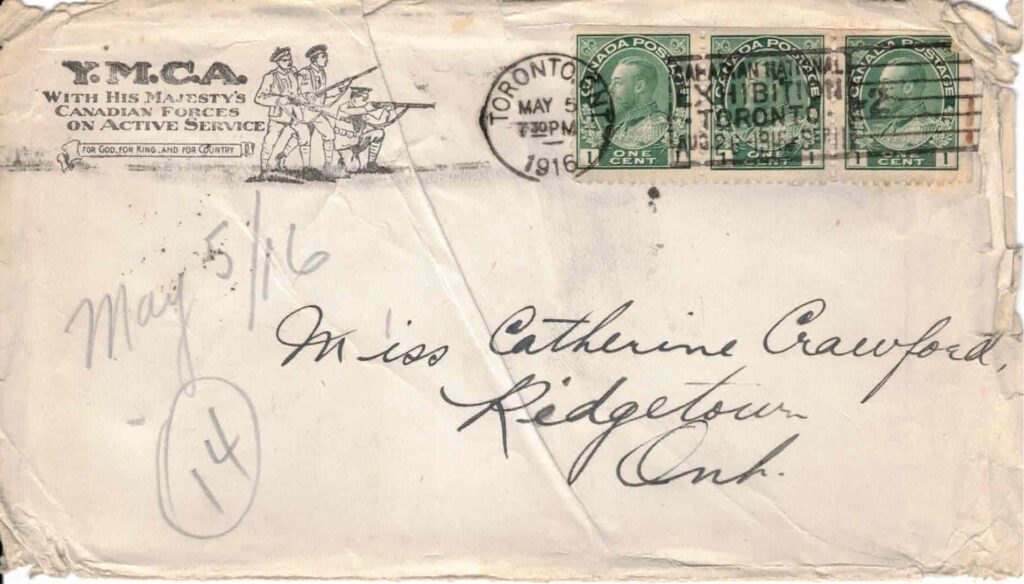 Y.M.C.A.
WITH HIS MAJESTY'S
CANADIAN FORCES
ON ACTIVE SERVICE
FOR GOD, FOR KING, AND FOR COUNTRY
TORONTO, ONT
MAY 5
7-30 PM
1916
CANADIAN NATIONAL
EXHIBITION
TORONTO
1916
2
CANADA POSTAGE
1 ONE CENT 1
CANADA POSTAGE
1 ONE CENT 1
CANADA POSTAGE
1 ONE CENT 1
May 5/16
14
Miss Catherine Crawford,
Ridgetown
Ont.